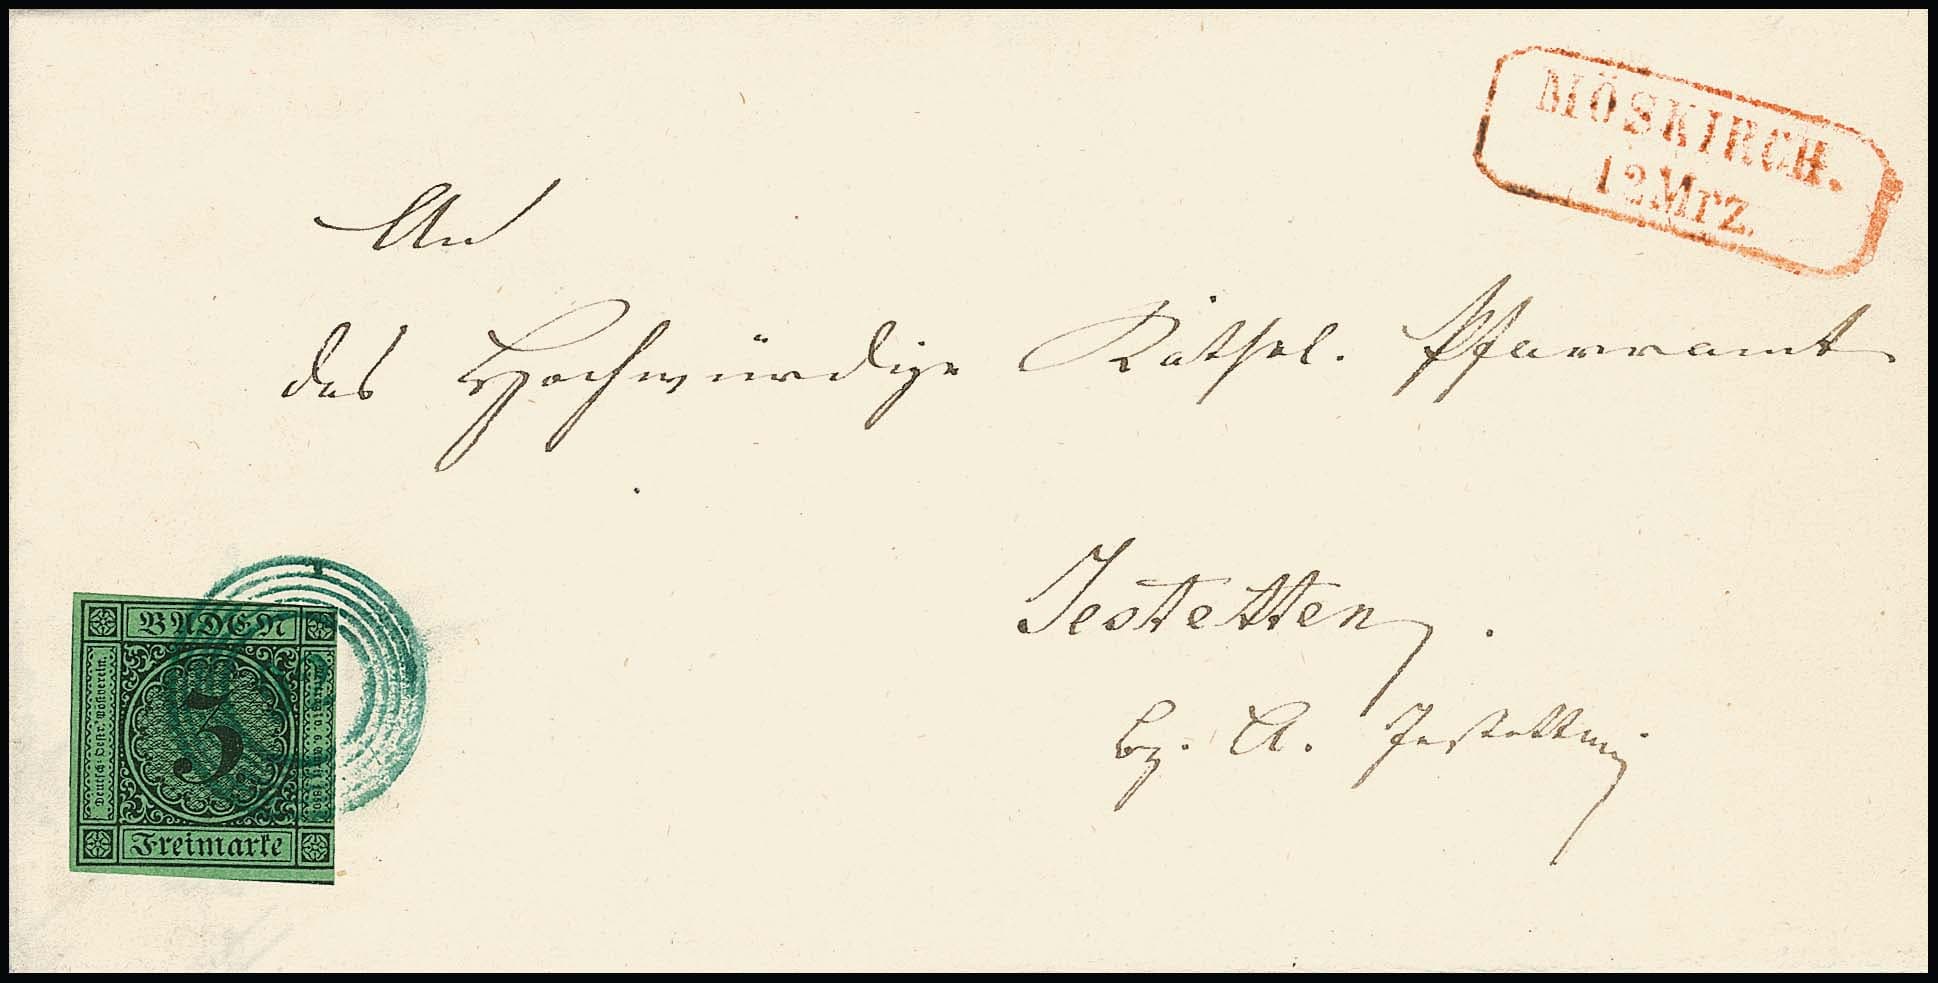 MÖSKIRCH.
12 Mrz.
An
das Hochwürdige Kathol. Pfarramt
Jestetten.
Bz. A. Jestetten
BADEN
Deutsch-Oestr. Postverein.
3
Freimarke